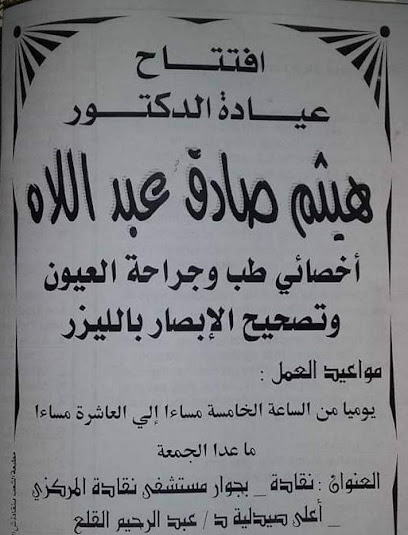 افتتاح
عيادة الدكتور
هيثم صادق عبد اللاه
أخصائي طب وجراحة العيون
وتصحيح الإبصار بالليزر
مواعيد العمل :
يوميا من الساعة الخامسة مساءا إلي العاشرة مساءا
ما عدا الجمعة
العنوان : نقادة _ بجوار مستشفى نقادة المركزي
_ أعلى صيدلية د / عبد الرحيم القلع
مطبعة الشعب بنقادة